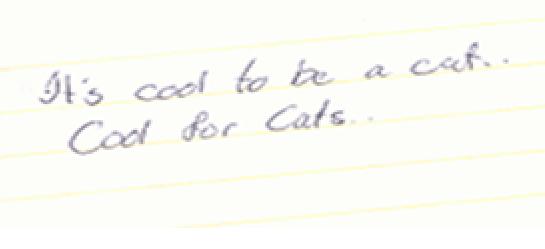 It's cool to be a cat..
Cool for Cats..